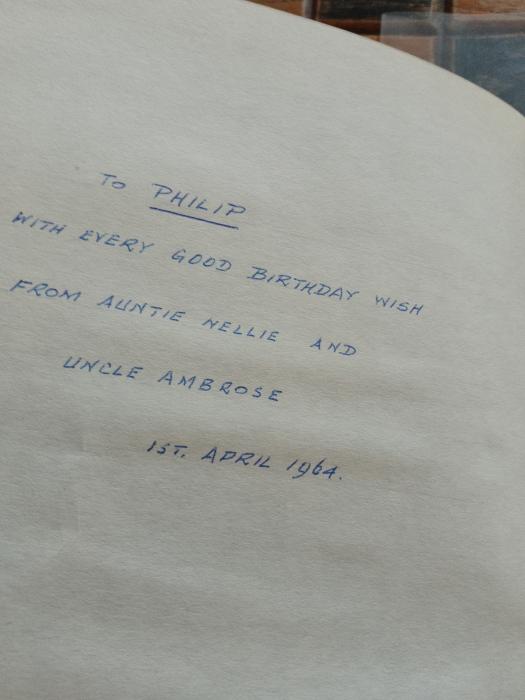 To PHILIP
WITH EVERY GOOD BIRTHDAY WISH
FROM AUNTIE NELLIE AND
UNCLE AMBROSE
1ST. APRIL 1964.